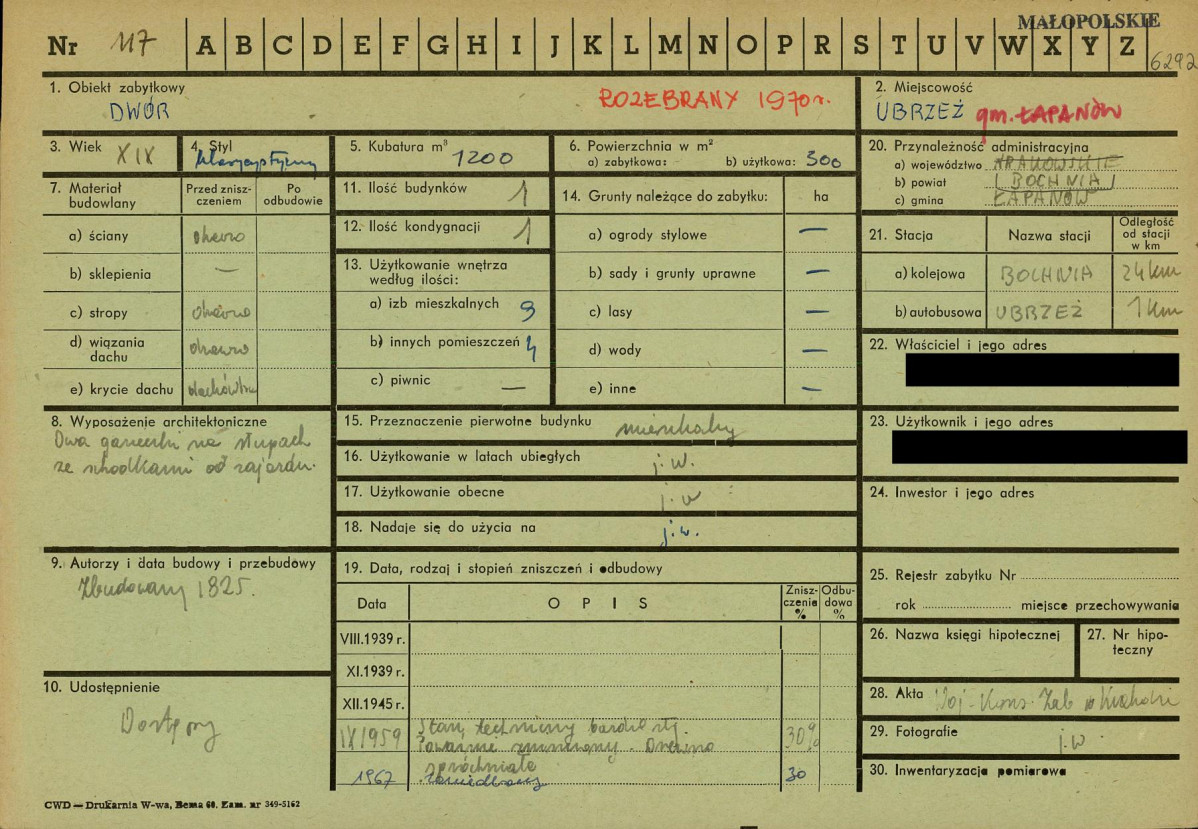 MAŁOPOLSKIE
Nr 117 A B C D E F G H I J K L M N O P R S T U V W X Y Z
6292
1. Obiekt zabytkowy
DWÓR
ROZEBRANY 1970 r.
2. Miejscowość
UBRZEŻ gm. ŁAPANÓW
3. Wiek XIX
4. Styl
klasycystyczny
5. Kubatura m³ 1200
6. Powierzchnia w m²
a) zabytkowa: b) użytkowa: 300
7. Materiał budowlany
Przed zniszczeniem
Po odbudowie
a) ściany drewno
b) sklepienia —
c) stropy drewno
d) wiązania dachu drewno
e) krycie dachu dachówka
8. Wyposażenie architektoniczne
Dwa ganeczki na słupach
ze schodkami od zajazdu.
9. Autorzy i data budowy i przebudowy
Zbudowany 1825.
10. Udostępnienie
Dostępny
11. Ilość budynków 1
12. Ilość kondygnacji 1
13. Użytkowanie wnętrza
według ilości:
a) izb mieszkalnych 9
b) innych pomieszczeń 4
c) piwnic —
14. Grunty należące do zabytku: ha
a) ogrody stylowe —
b) sady i grunty uprawne —
c) lasy —
d) wody —
e) inne —
15. Przeznaczenie pierwotne budynku mieszkalny
16. Użytkowanie w latach ubiegłych j. w.
17. Użytkowanie obecne j. w
18. Nadaje się do użycia na j. w.
19. Data, rodzaj i stopień zniszczeń i odbudowy
Data OPIS Zniszczenie % Odbudowa %
VIII.1939 r.
XI.1939 r.
XII.1945 r.
IX 1959 Stan techniczny bardzo zły. 30%
Poważnie zrujnowany. Drewno
spróchniałe
1967 zaniedbany 30
20. Przynależność administracyjna
a) województwo KRAKOWSKIE
b) powiat BOCHNIA
c) gmina ŁAPANÓW
21. Stacja Nazwa stacji Odległość od stacji w km
a) kolejowa BOCHNIA 24 km
b) autobusowa UBRZEŻ 1 km
22. Właściciel i jego adres
23. Użytkownik i jego adres
24. Inwestor i jego adres
25. Rejestr zabytku Nr
rok miejsce przechowywania
26. Nazwa księgi hipotecznej
27. Nr hipoteczny
28. Akta Woj. Kons. Zab. w Krakowie
29. Fotografie j. w
30. Inwentaryzacja pomiarowa
CWD — Drukarnia W-wa, Bema 60. Zam. nr 349-5162